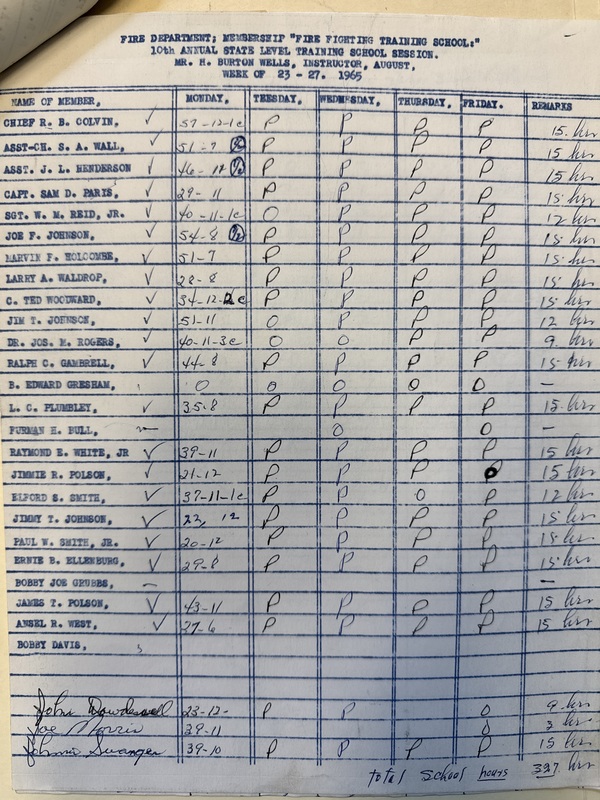 FIRE DEPARTMENT; MEMBERSHIP "FIRE FIGHTING TRAINING SCHOOL:"
10th ANNUAL STATE LEVEL TRAINING SCHOOL SESSION.
MR. H. BURTON WELLS, INSTRUCTOR, AUGUST,
WEEK OF 23 - 27. 1965
NAME OF MEMBER, MONDAY, TUESDAY, WEDNESDAY, THURSDAY, FRIDAY. REMARKS
CHIEF R. B. COLVIN, ✓ 57-12-1c P P P P 15. hrs
ASST-CH. S. A. WALL, ✓ 51-7 P P P P 15 hrs
ASST. J. L. HENDERSON ✓ P P P P 15 hrs
CAPT. SAM D. PARIS, ✓ 29-11 P P P P 15 hrs
SGT. W. M. REID, JR. ✓ 40-11-1c O P P P 12 hrs
JOE F. JOHNSON, ✓ 54-8 P P P P 15 hrs
MARVIN F. HOLCOMBE, ✓ 51-7 P P P P 15 hrs
LARRY A. WALDROP, ✓ 28-8 P P P P 15 hrs
C. TED WOODWARD, ✓ 34-12-2c P P P P 15 hrs
JIM T. JOHNSON, ✓ 51-11 O P P P 12 hrs
DR. JOS. M. ROGERS, ✓ 40-11-3c O O P P 9 hrs
RALPH C. GAMBRELL, ✓ 44-8 P P P P 15 hrs
B. EDWARD GRESHAM, O O O O O —
L. C. PLUMBLEY, ✓ 35-8 P P P P 15 hrs
FURMAN H. BULL, — O O —
RAYMOND E. WHITE, JR ✓ 39-11 P P P P 15 hrs
JIMMIE R. POLSON, ✓ 21-12 P P P O 15 hrs
ELFORD S. SMITH, ✓ 37-11-1c P P O P 12 hrs
JIMMY T. JOHNSON, ✓ 22, 12 P P P P 15 hrs
PAUL W. SMITH, JR. ✓ 20-12 P P P P 15 hrs
ERNIE B. ELLENBURG, ✓ 29-8 P P P P 15 hrs
BOBBY JOE GRUBBS, — —
JAMES T. POLSON, ✓ 43-11 P P P P 15 hrs
ANSEL R. WEST, ✓ 27-6 P P P P 15 hrs
BOBBY DAVIS,
John 23-12- P P O 9 hrs
Joe Morris 29-11 O 3 hrs
Johnnie Swanger 39-10 P P P P 15 hrs
total school hours 327 hrs